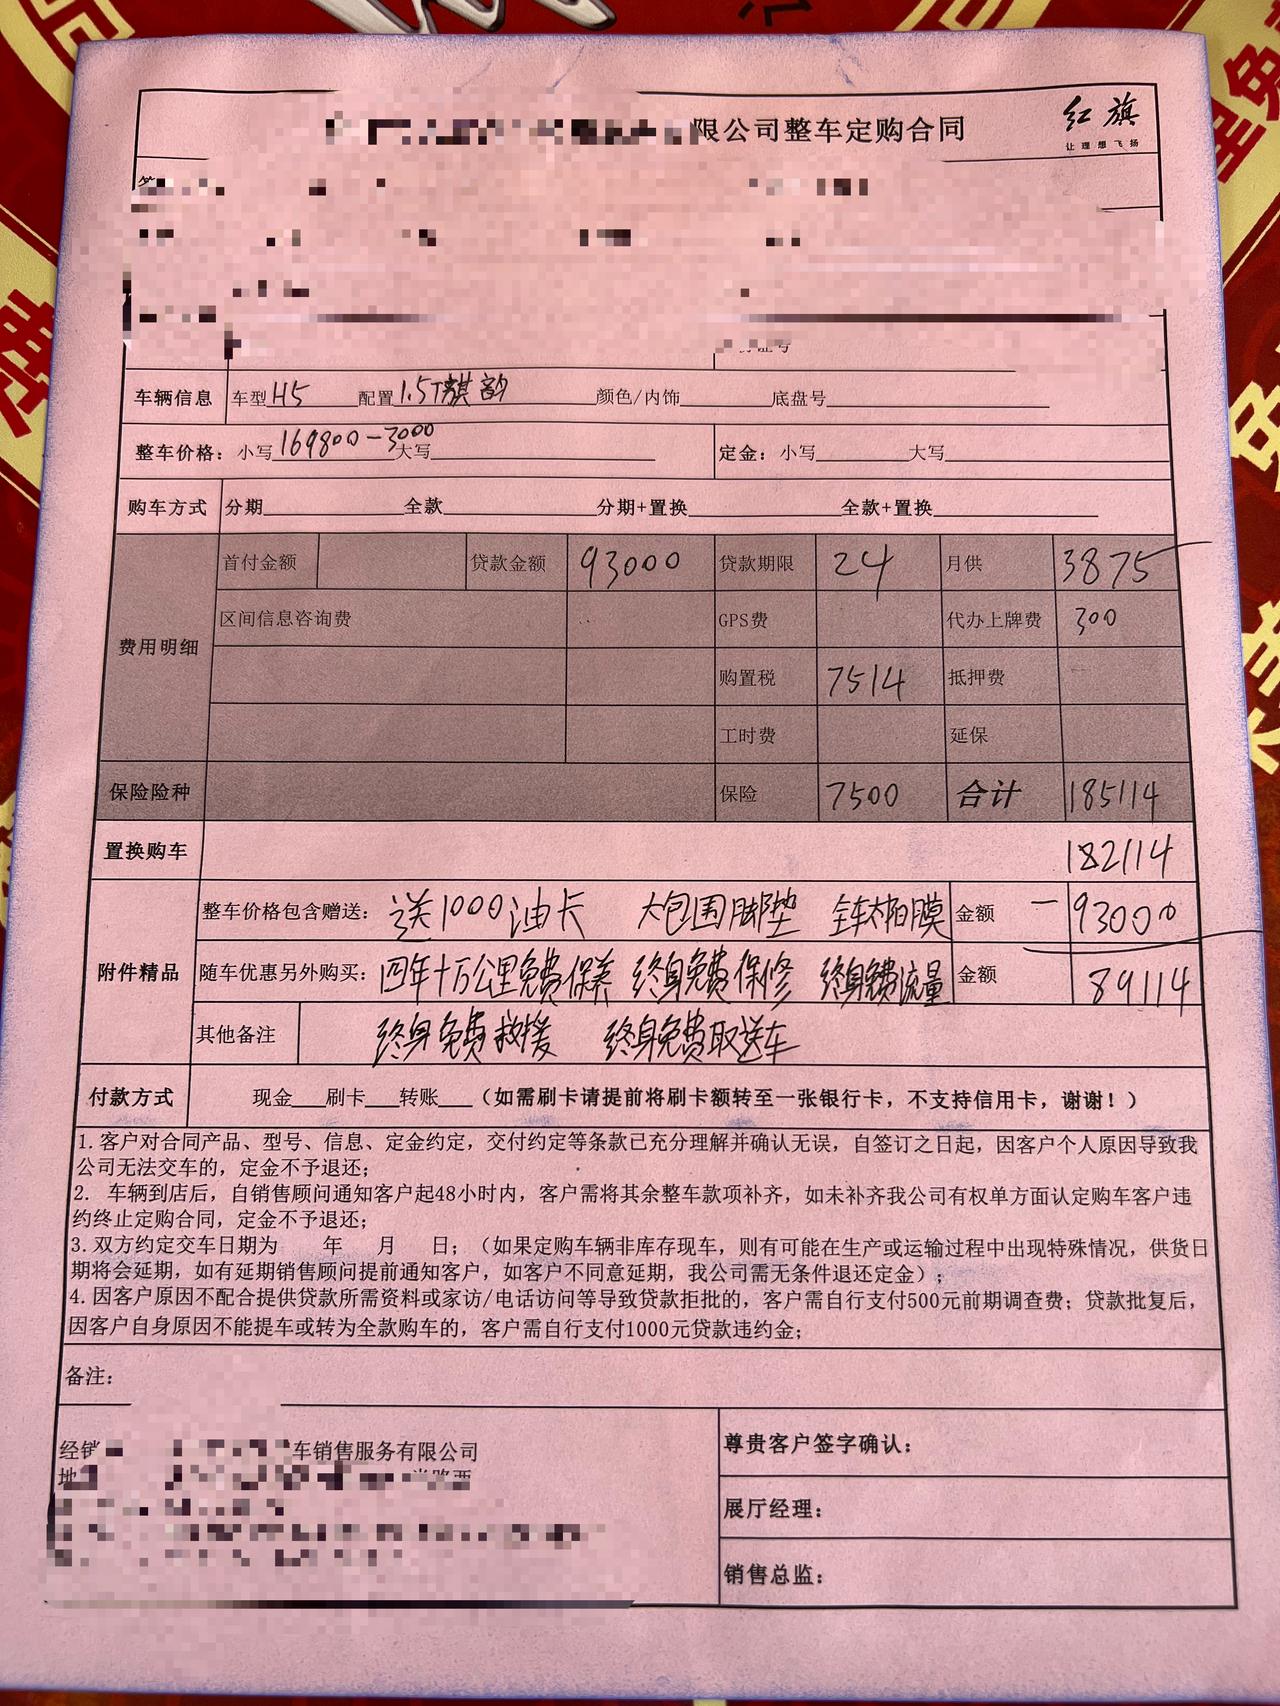 限公司整车定购合同
红旗
让理想飞扬
车辆信息 车型 H5 配置 1.5T旗韵 颜色/内饰 底盘号
整车价格：小写 169800-3000 大写 定金：小写 大写
购车方式 分期 全款 分期+置换 全款+置换
费用明细
首付金额 贷款金额 93000 贷款期限 24 月供 3875
区间信息咨询费 GPS费 代办上牌费 300
购置税 7514 抵押费
工时费 延保
保险险种 保险 7500 合计 185114
置换购车 182114
附件精品
整车价格包含赠送：送1000油卡 大包围脚垫 全车太阳膜 金额 -93000
随车优惠另外购买：四年十万公里免费保养 终身免费保修 终身免费流量 金额 89114
其他备注 终身免费救援 终身免费取送车
付款方式 现金___刷卡___转账___（如需刷卡请提前将刷卡额转至一张银行卡，不支持信用卡，谢谢！）
1.客户对合同产品、型号、信息、定金约定，交付约定等条款已充分理解并确认无误，自签订之日起，因客户个人原因导致我
公司无法交车的，定金不予退还；
2. 车辆到店后，自销售顾问通知客户起48小时内，客户需将其余整车款项补齐，如未补齐我公司有权单方面认定购车客户违
约终止定购合同，定金不予退还；
3.双方约定交车日期为 年 月 日；（如果定购车辆非库存现车，则有可能在生产或运输过程中出现特殊情况，供货日
期将会延期，如有延期销售顾问提前通知客户，如客户不同意延期，我公司需无条件退还定金）；
4.因客户原因不配合提供贷款所需资料或家访/电话访问等导致贷款拒批的，客户需自行支付500元前期调查费；贷款批复后，
因客户自身原因不能提车或转为全款购车的，客户需自行支付1000元贷款违约金；
备注：
经销 车销售服务有限公司
地
尊贵客户签字确认：
展厅经理：
销售总监：